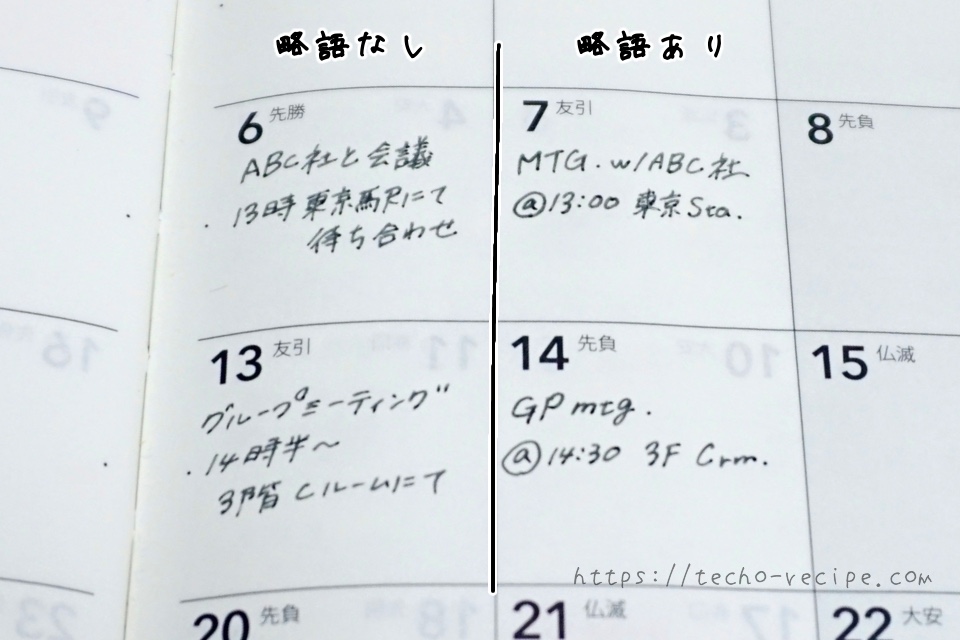 略語なし
略語あり
6 先勝
ABC社と会議
・13時 東京駅にて
待ち合わせ
7 友引
MTG. w/ABC社
@13:00 東京Sta.
8 先負
13 友引
グループミーティング
・14時半〜
3階 Cルームにて
14 先負
GP mtg.
@14:30 3F Crm.
15 仏滅
https://techo-recipe.com
20 先負
21 仏滅
22 大安
9
4
3
16
11
10
23
18
17